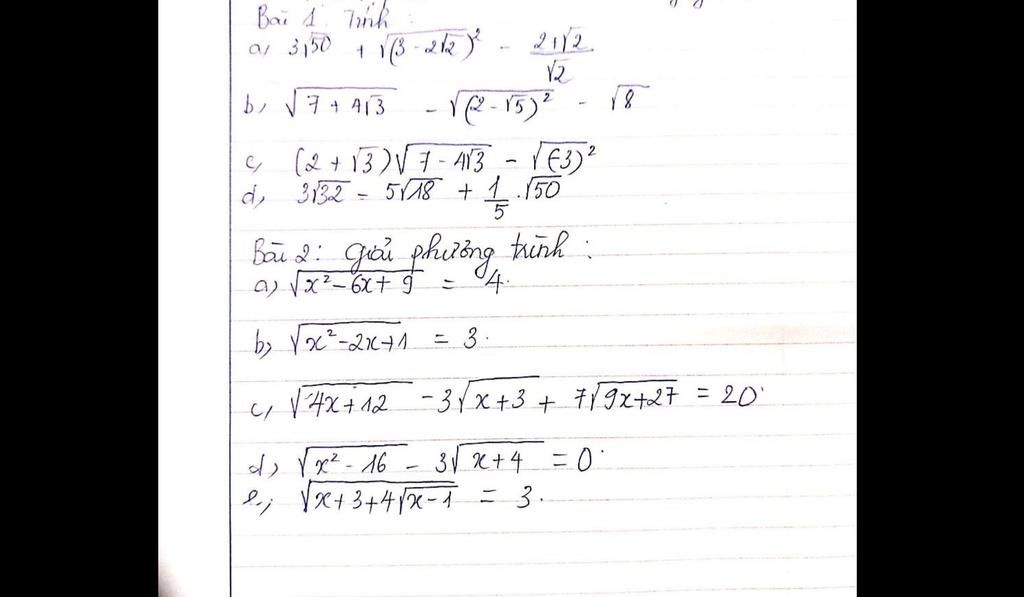 Bài 1 Tính :
a, 3√50 + √(3 - 2√2)² - (2+√2)/√2
b, √(7 + 4√3) - √(2 - √5)² - √8
c, (2 + √3)√(7 - 4√3) - √(-3)²
d, 3√32 - 5√18 + 1/5 . √50
Bài 2 : giải phương trình :
a) √(x² - 6x + 9) = 4.
b) √(x² - 2x + 1) = 3.
c, √(4x + 12) - 3√(x + 3) + 7√(9x + 27) = 20.
d) √(x² - 16) - 3√(x + 4) = 0.
e, √(x + 3 + 4√(x - 1)) = 3.